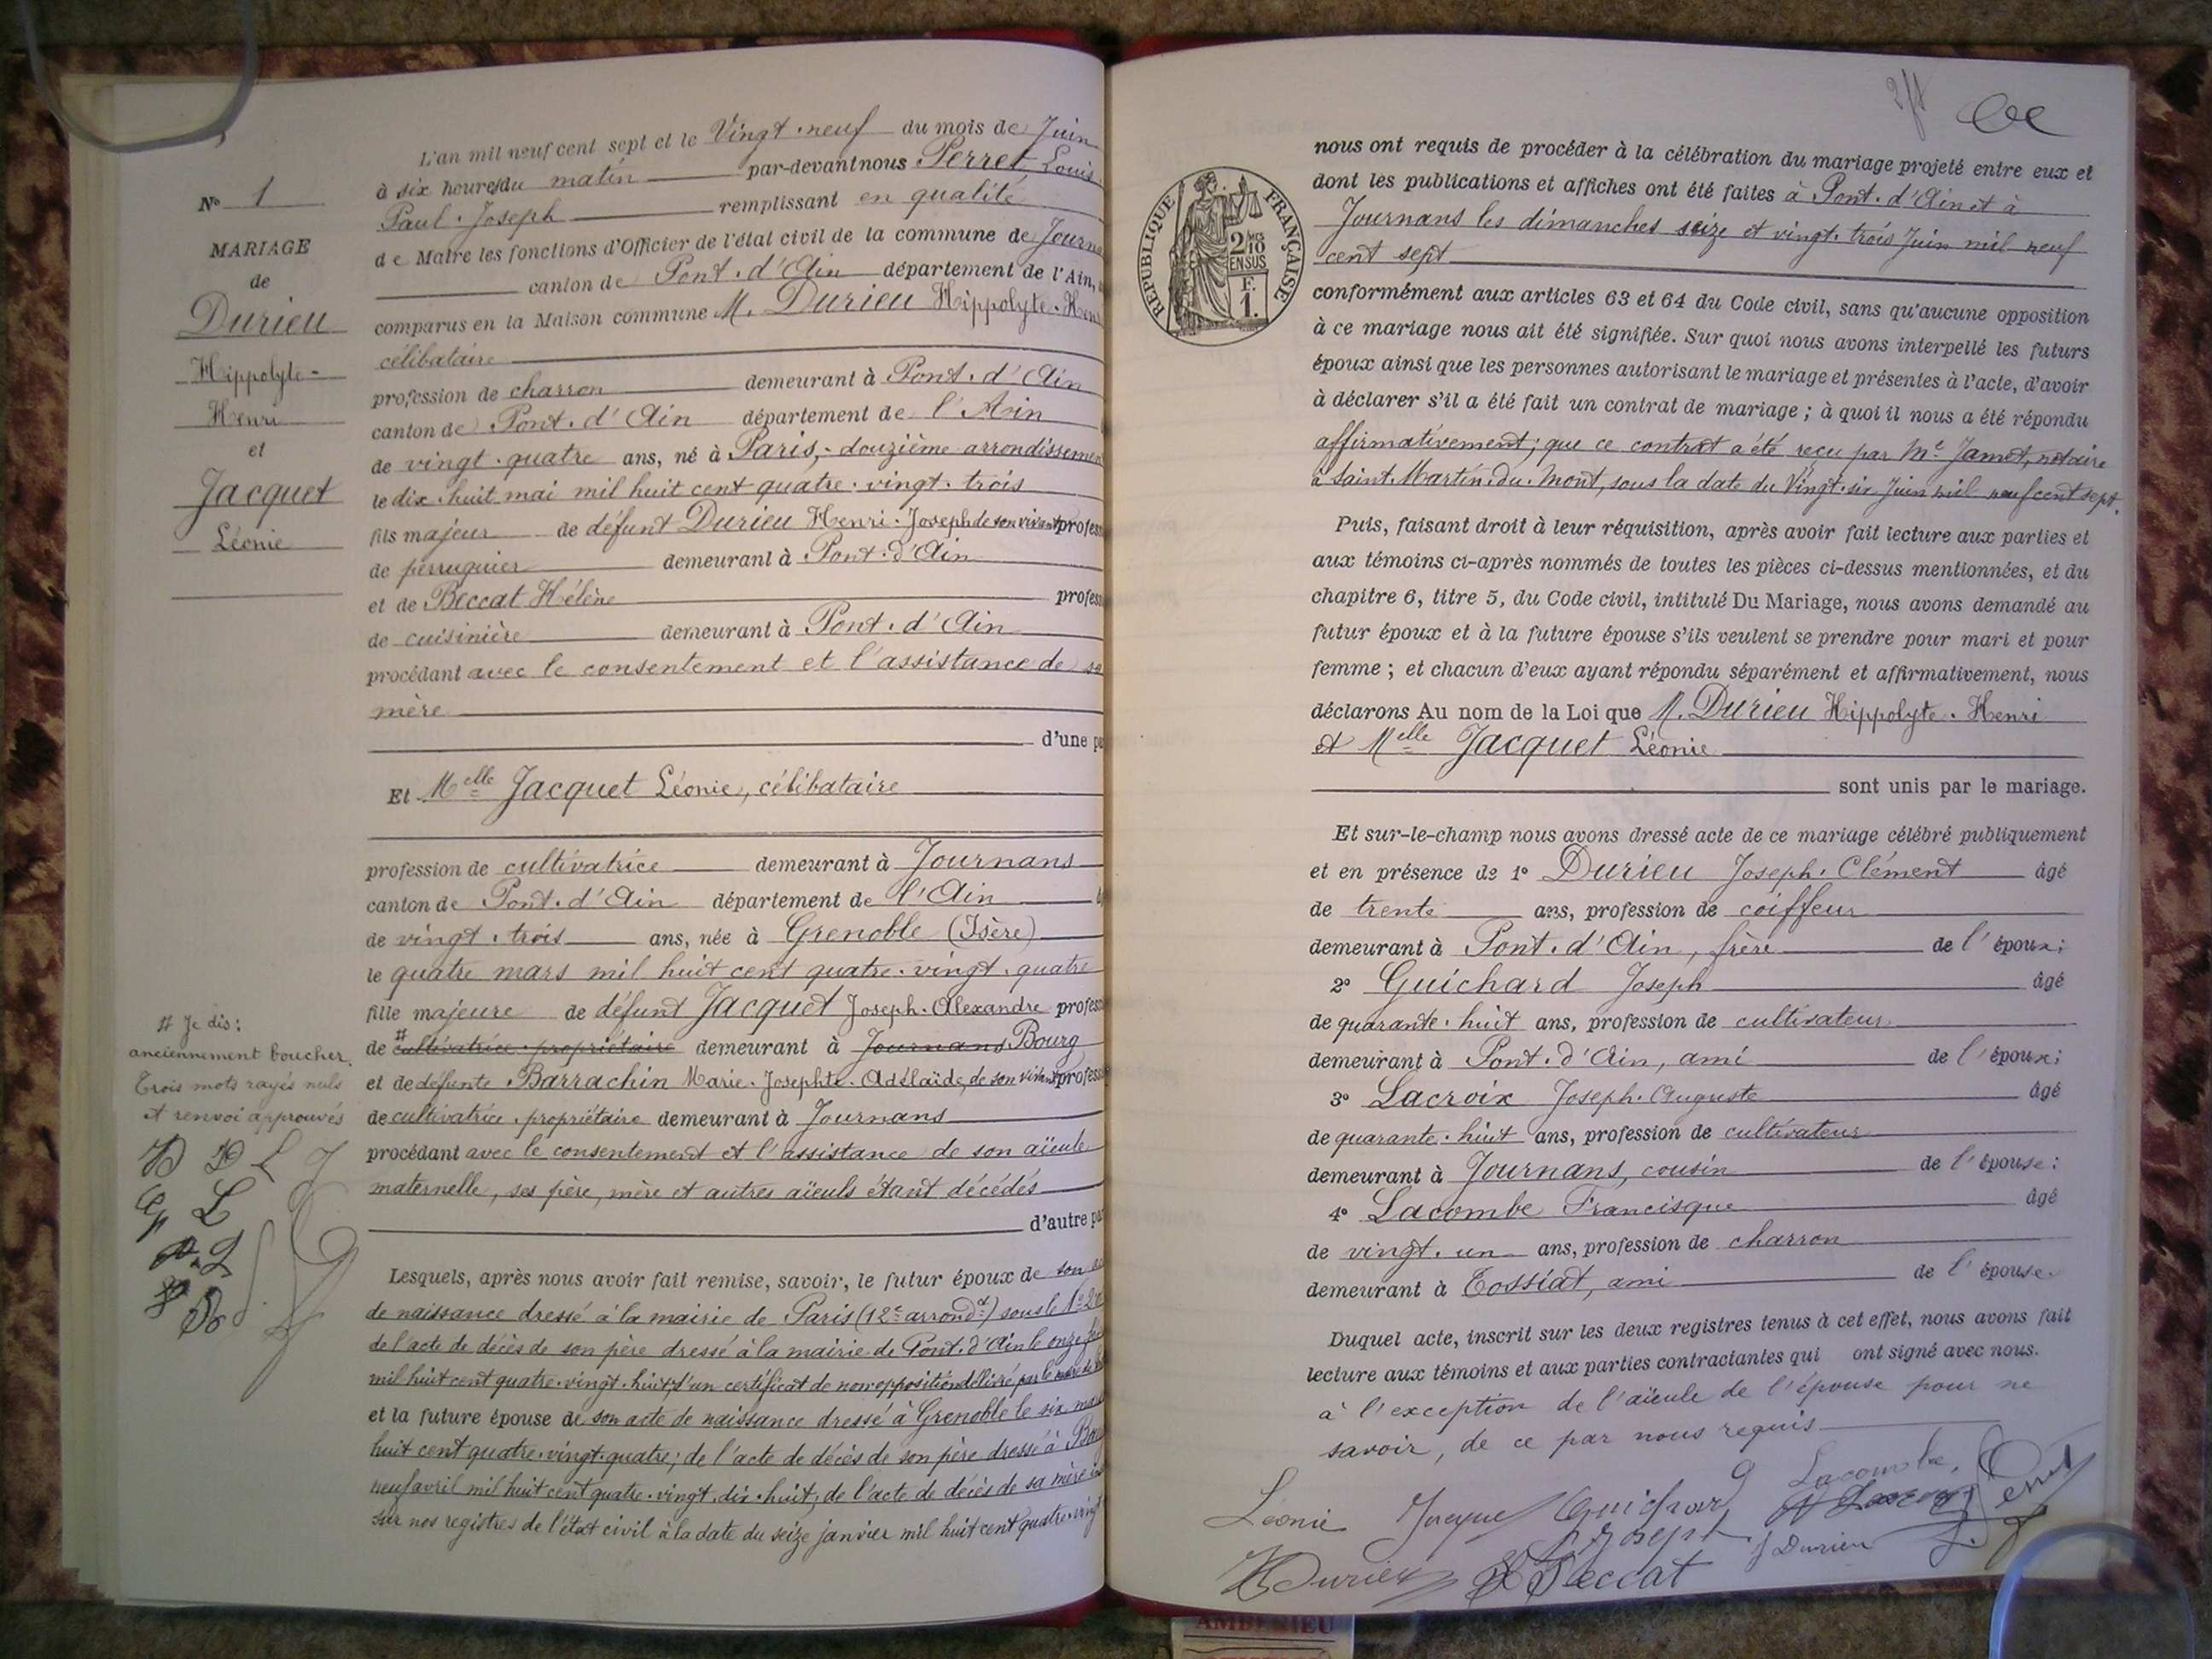 N° 1
MARIAGE
de
Durieu
Hippolyte-
Henri
et
Jacquet
Léonie
L'an mil neuf cent sept et le Vingt-neuf du mois de Juin
à six heures du matin par-devant nous Perret, Louis
Paul-Joseph remplissant en qualité
de Maire les fonctions d'Officier de l'état civil de la commune de Journa
canton de Pont-d'Ain département de l'Ain,
comparus en la Maison commune M. Durieu Hippolyte-Hen
célibataire
profession de charron demeurant à Pont-d'Ain
canton de Pont-d'Ain département de l'Ain
de vingt-quatre ans, né à Paris,- douzième arrondissemen
le dix-huit mai mil huit cent quatre-vingt-trois
fils majeur de défunt Durieu Henri-Joseph de son vivant profess
de perruquier demeurant à Pont-d'Ain
et de Beccat Hélène profess
de cuisinière demeurant à Pont-d'Ain
procédant avec le consentement et l'assistance de sa
mère
d'une pa
Et Melle Jacquet Léonie, célibataire
profession de cultivatrice demeurant à Journans
canton de Pont-d'Ain département de l'Ain
de vingt-trois ans, née à Grenoble (Isère)
le quatre mars mil huit cent quatre-vingt-quatre
fille majeure de défunt Jacquet Joseph-Alexandre profess
de # cultivatrice-propriétaire demeurant à Journans Bourg
et de défunte Barrachin Marie-Josephte-Adélaïde, de son vivant profess
de cultivatrice-propriétaire demeurant à Journans
procédant avec le consentement et l'assistance de son aïeule
maternelle, ses père, mère et autres aïeuls étant décédés
d'autre pa
# Je dis:
anciennement boucher.
Trois mots rayés nuls
et renvoi approuvés
Lesquels, après nous avoir fait remise, savoir, le futur époux de son
de naissance dressé à la mairie de Paris (12e arrondt) sous le
de l'acte de décès de son père dressé à la mairie de Pont-d'Ain le onze
mil huit cent quatre-vingt-huit; d'un certificat de non opposition délivré par le maire de
et la future épouse de son acte de naissance dressé à Grenoble le six ma
huit cent quatre-vingt-quatre; de l'acte de décès de son père dressé à Bou
neuf avril mil huit cent quatre-vingt-dix-huit; de l'acte de décès de sa mère
sur nos registres de l'état civil à la date du seize janvier mil huit cent quatre-vingt
RÉPUBLIQUE FRANÇAISE
2/10 EN SUS
F. 1.
nous ont requis de procéder à la célébration du mariage projeté entre eux et
dont les publications et affiches ont été faites à Pont-d'Ain et à
Journans les dimanches seize et vingt-trois Juin mil neuf
cent sept
conformément aux articles 63 et 64 du Code civil, sans qu'aucune opposition
à ce mariage nous ait été signifiée. Sur quoi nous avons interpellé les futurs
époux ainsi que les personnes autorisant le mariage et présentes à l'acte, d'avoir
à déclarer s'il a été fait un contrat de mariage ; à quoi il nous a été répondu
affirmativement; que ce contrat a été reçu par Me Jamet, notaire
à Saint-Martin-du-Mont, sous la date du Vingt-six Juin mil neuf cent sept.
Puis, faisant droit à leur réquisition, après avoir fait lecture aux parties et
aux témoins ci-après nommés de toutes les pièces ci-dessus mentionnées, et du
chapitre 6, titre 5, du Code civil, intitulé Du Mariage, nous avons demandé au
futur époux et à la future épouse s'ils veulent se prendre pour mari et pour
femme ; et chacun d'eux ayant répondu séparément et affirmativement, nous
déclarons Au nom de la Loi que M. Durieu Hippolyte-Henri
et Melle Jacquet Léonie
sont unis par le mariage.
Et sur-le-champ nous avons dressé acte de ce mariage célébré publiquement
et en présence de 1° Durieu Joseph-Clément âgé
de trente ans, profession de coiffeur
demeurant à Pont-d'Ain, frère de l'époux;
2° Guichard Joseph âgé
de quarante-huit ans, profession de cultivateur
demeurant à Pont-d'Ain, ami de l'époux;
3° Lacroix Joseph-Auguste âgé
de quarante-huit ans, profession de cultivateur
demeurant à Journans, cousin de l'épouse;
4° Lacombe Francisque âgé
de vingt-un ans, profession de charron
demeurant à Tossiat, ami de l'épouse.
Duquel acte, inscrit sur les deux registres tenus à cet effet, nous avons fait
lecture aux témoins et aux parties contractantes qui ont signé avec nous.
à l'exception de l'aïeule de l'épouse pour ne
savoir, de ce par nous requis
Léonie Jacquet Guichard Lacombe
Joseph J Durieu Perret
H Durieu H Beccat
AMBERIEU